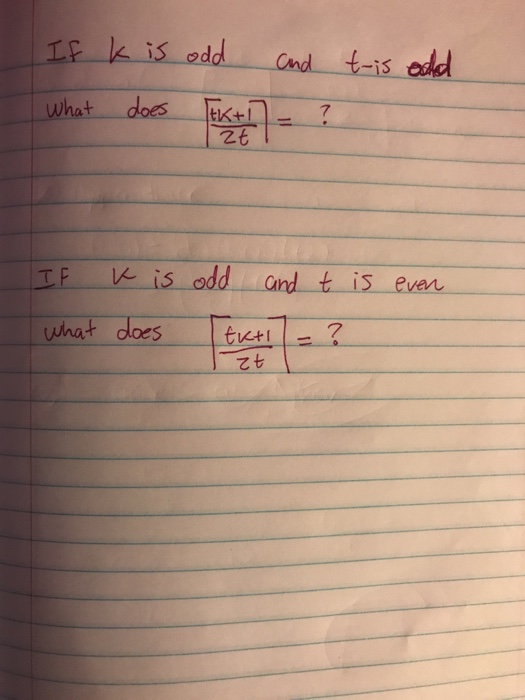 If k is odd and t-is odd
what does ⌈tk+1/2t⌉ = ?
IF k is odd and t is even
what does ⌈tk+1/2t⌉ = ?